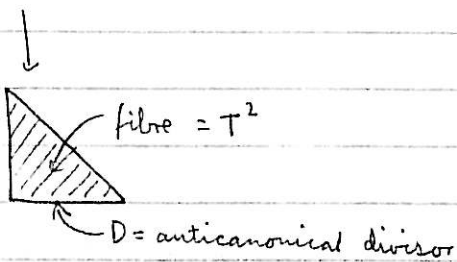 fibre = T²
D = anticanonical divisor